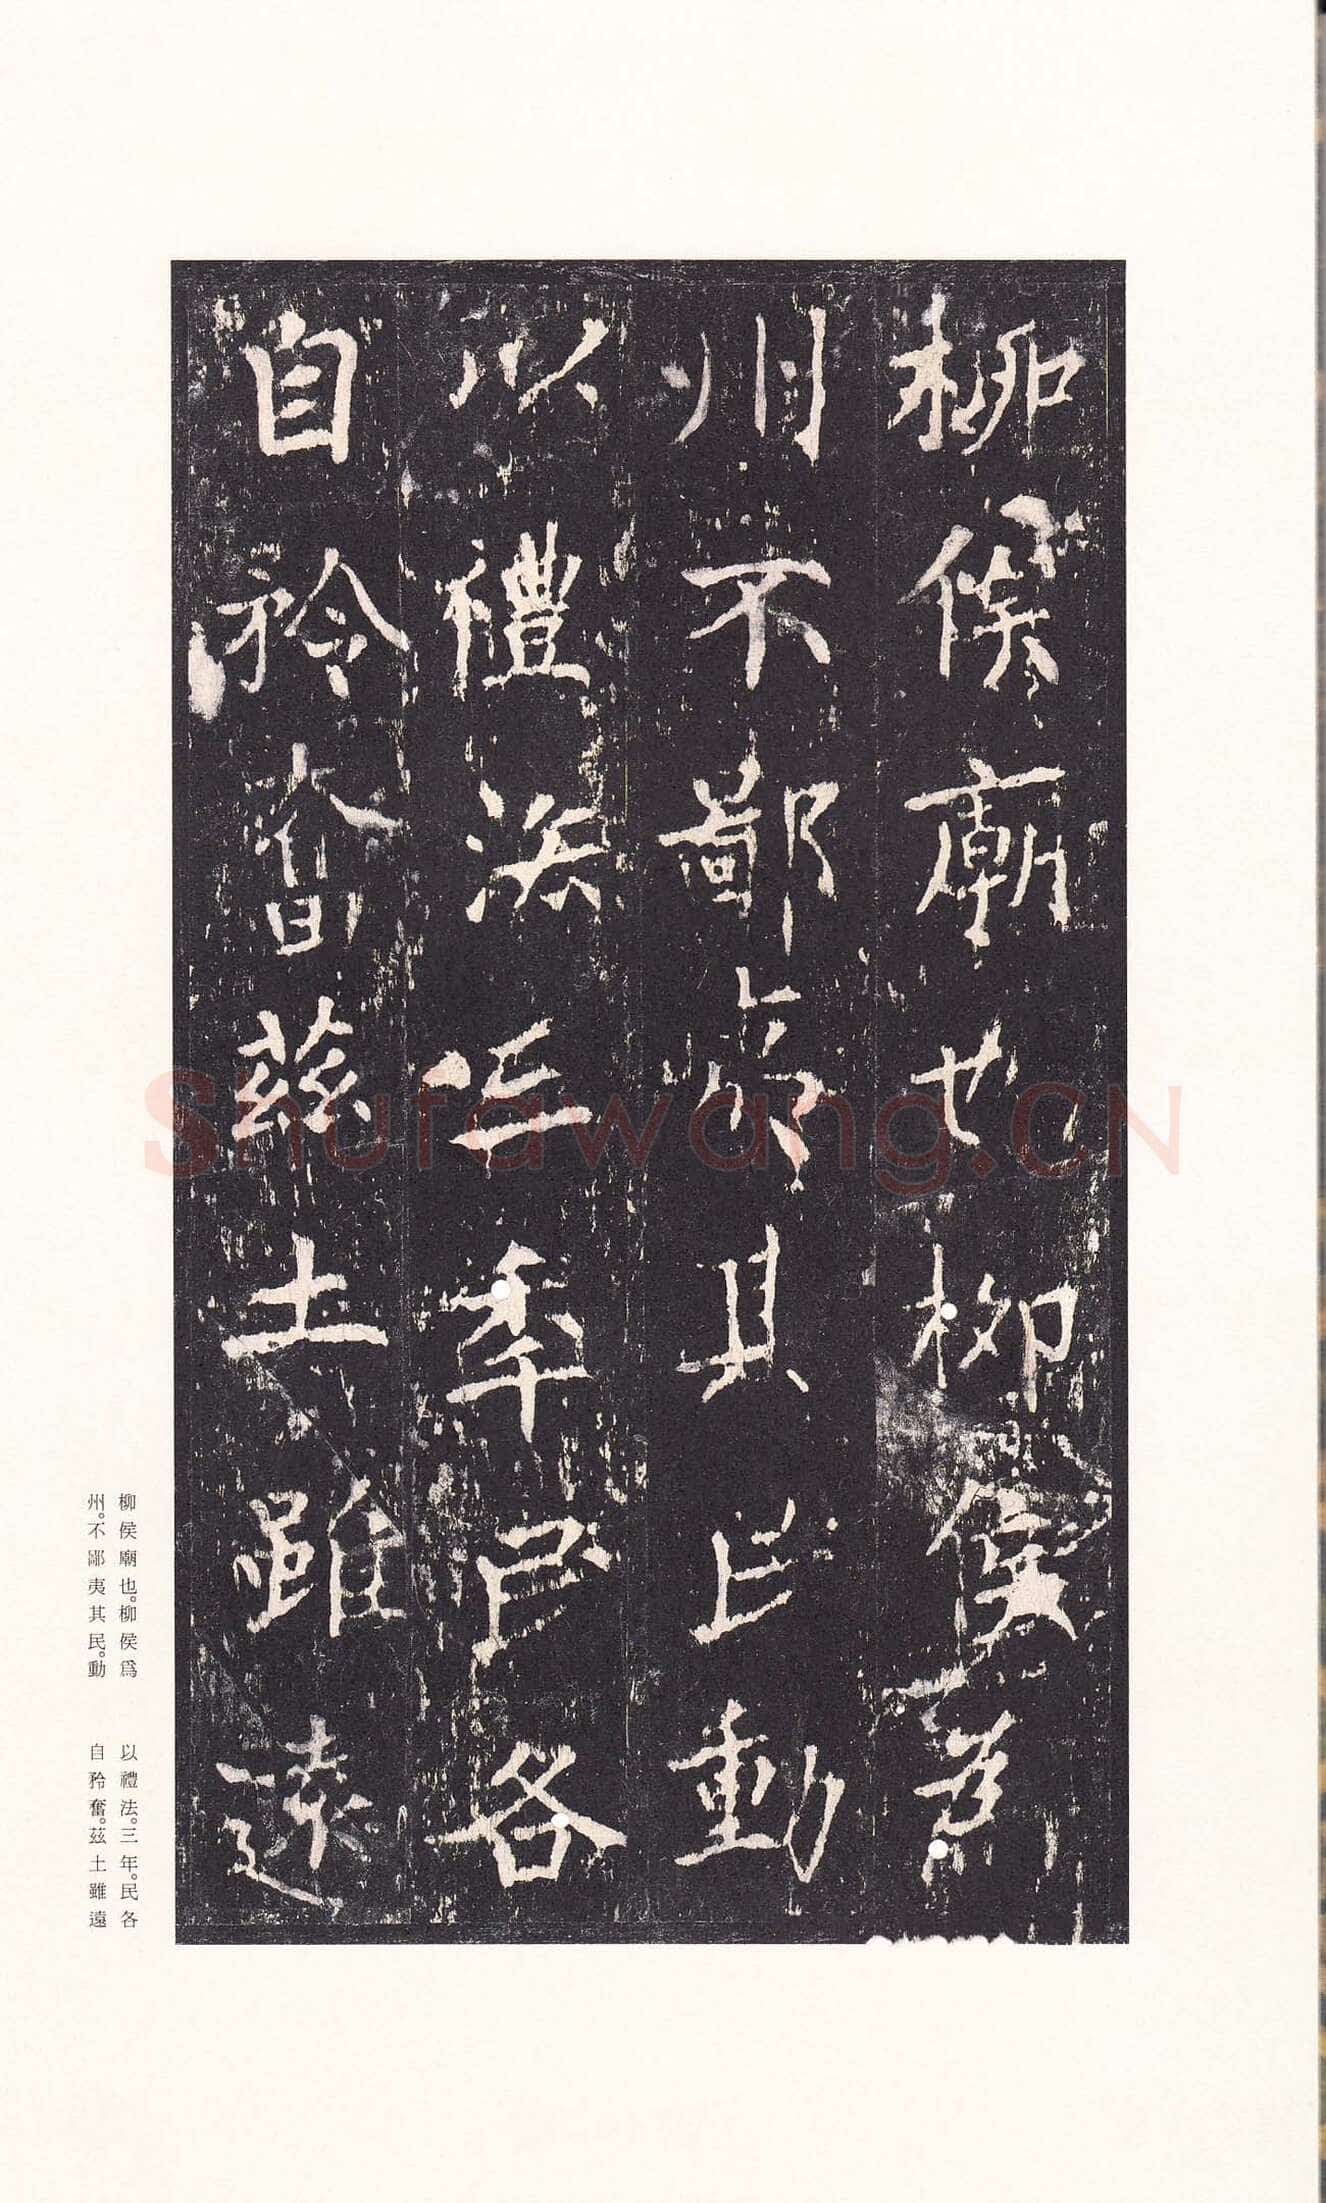 柳侯廟也柳侯爲
州不鄙夷其民動
以禮法三年民各
自矜奮茲土雖遠
柳侯廟也。柳侯爲
州。不鄙夷其民。動
以禮法。三年。民各
自矜奮。茲土雖遠
Shufawang.CN